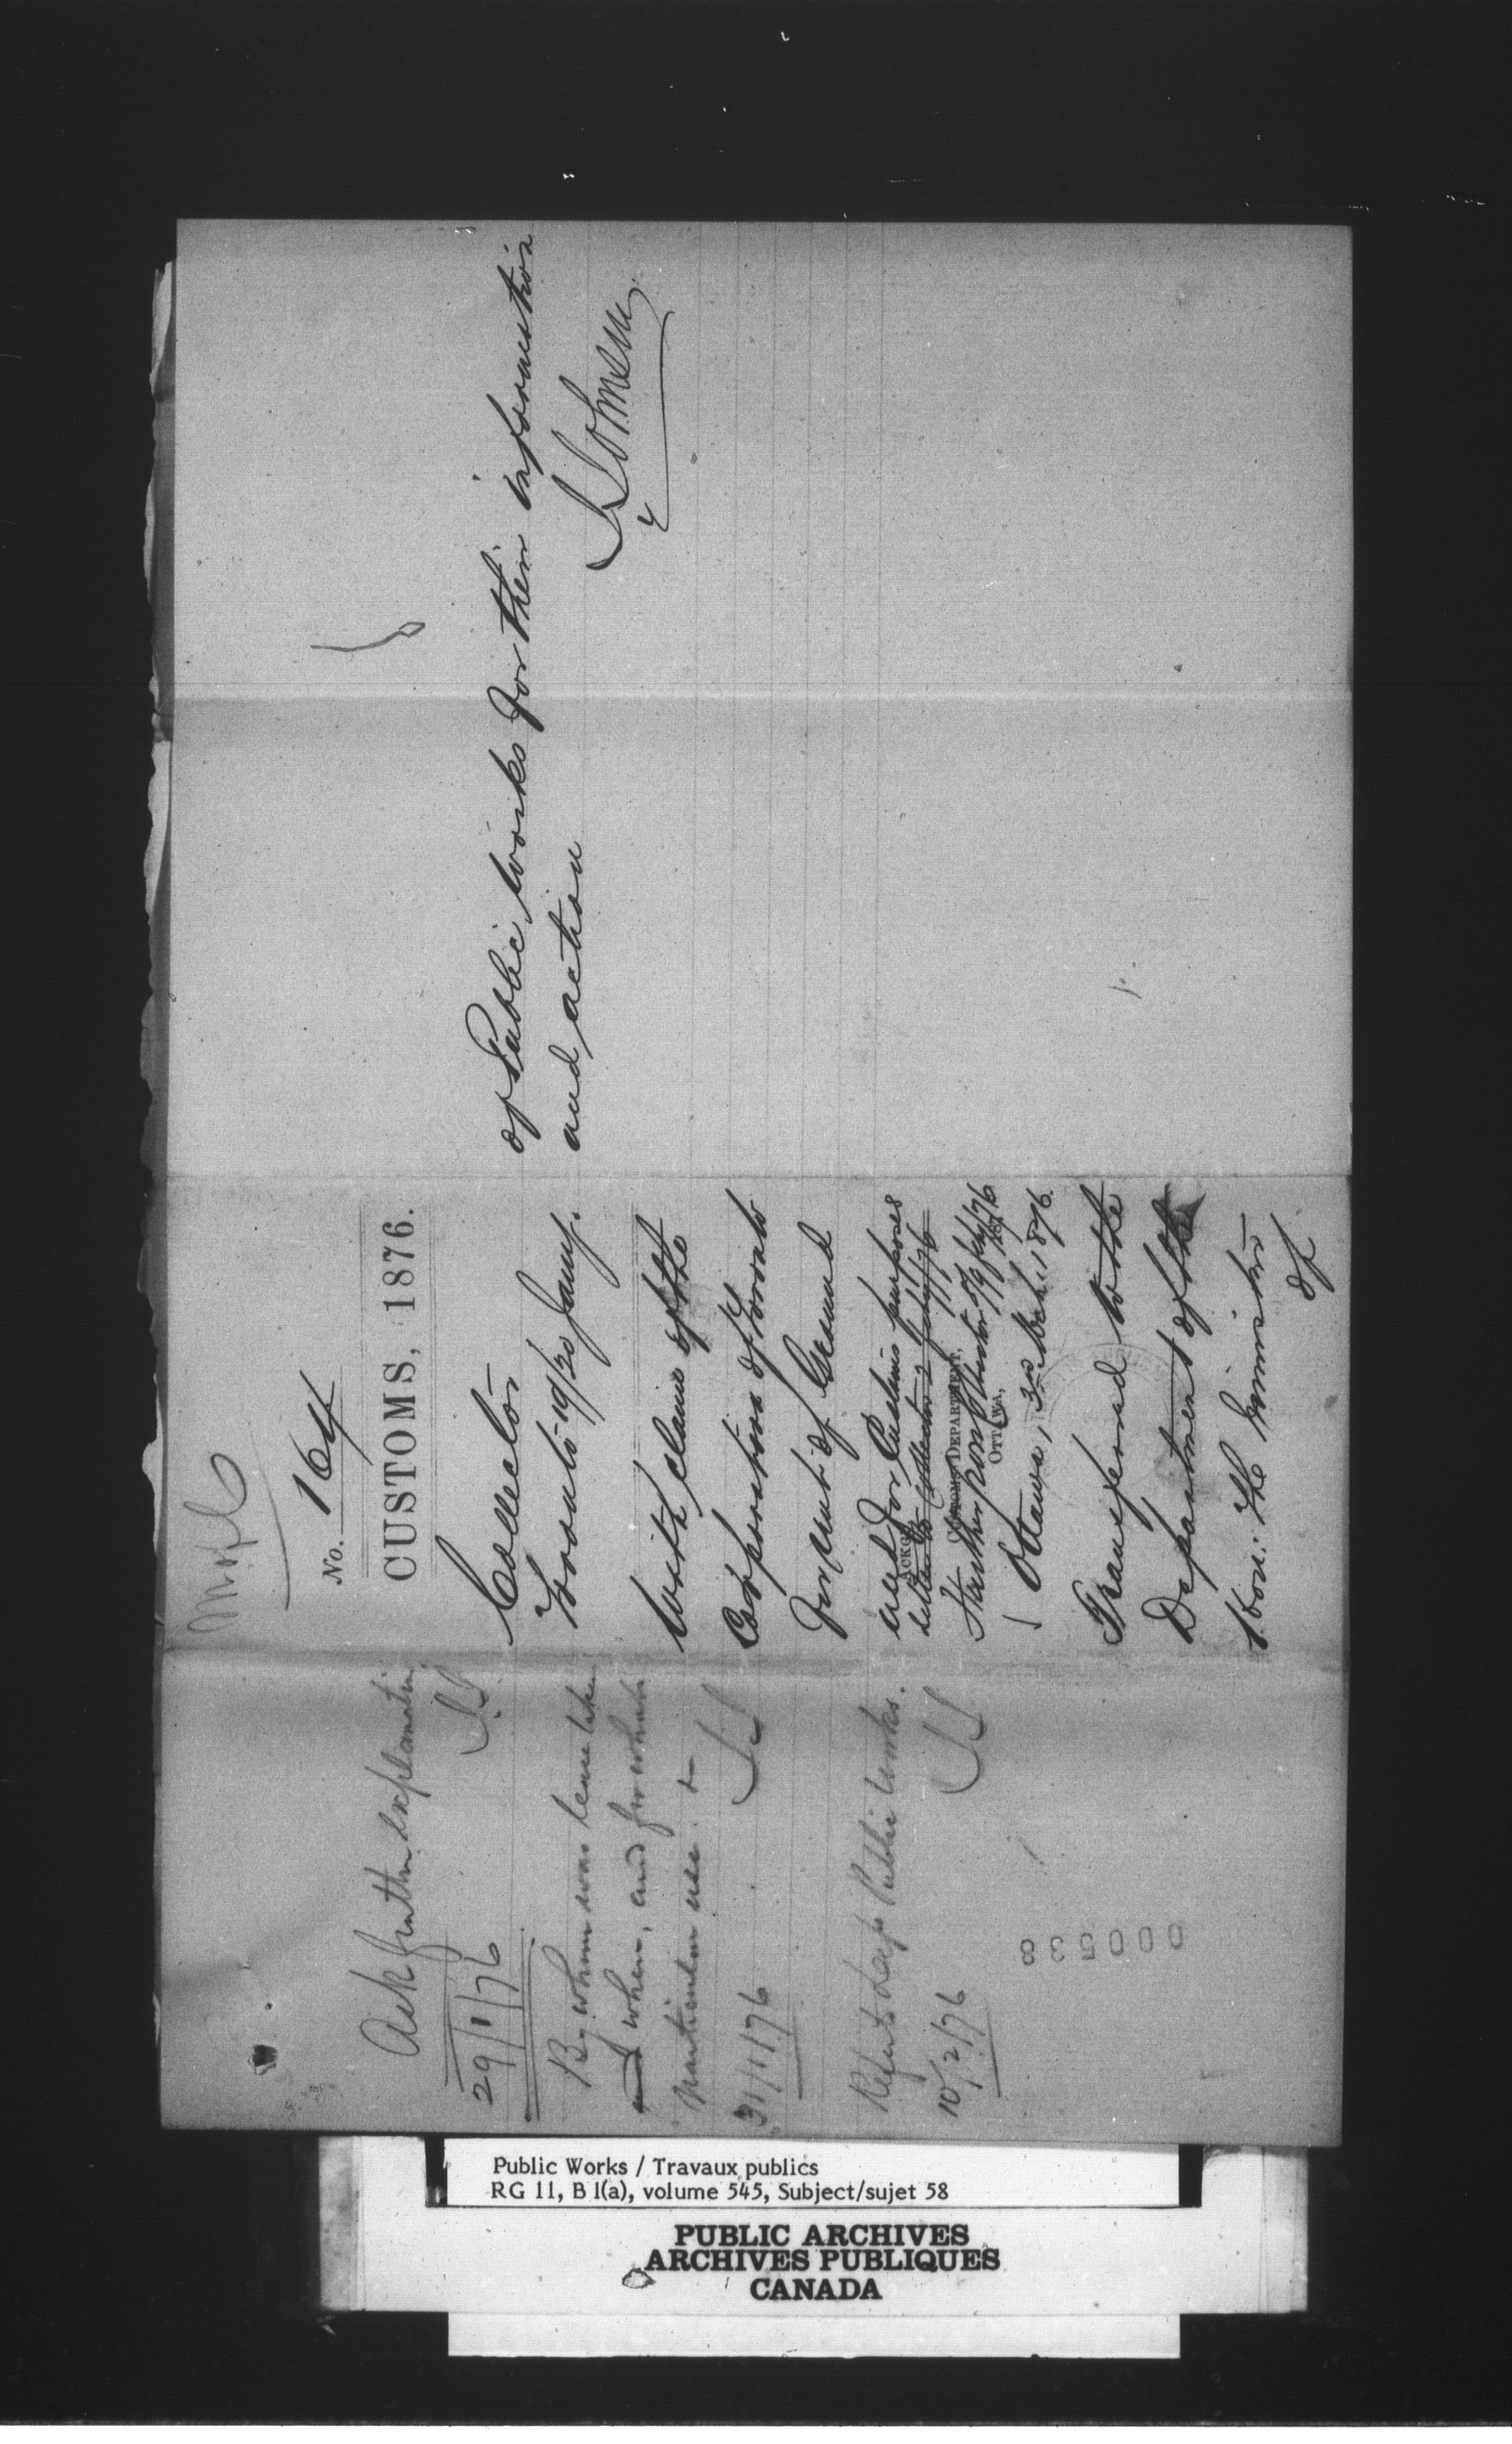 No. 164
CUSTOMS, 1876.
Collector
Toronto 19/20 Jany.
With claim of the
Corporation of Toronto
for Rent of Ground
used for Customs purposes
ACKG
CUSTOMS DEPARTMENT,
OTTAWA,
Ottawa, 3rd Mch. 1876.
Transferred to the
Department of the
Hon: the Minister
of
of Public Works for their information
and action
J Johnson
Ask further explanation
JJ
29/1/76
By whom was lease taken
and when, and for what
particular use
JJ
31/1/76
Refer to Dep Public Works.
JJ
10/2/76
000538
Public Works / Travaux publics
RG 11, B 1(a), volume 545, Subject/sujet 58
PUBLIC ARCHIVES
ARCHIVES PUBLIQUES
CANADA